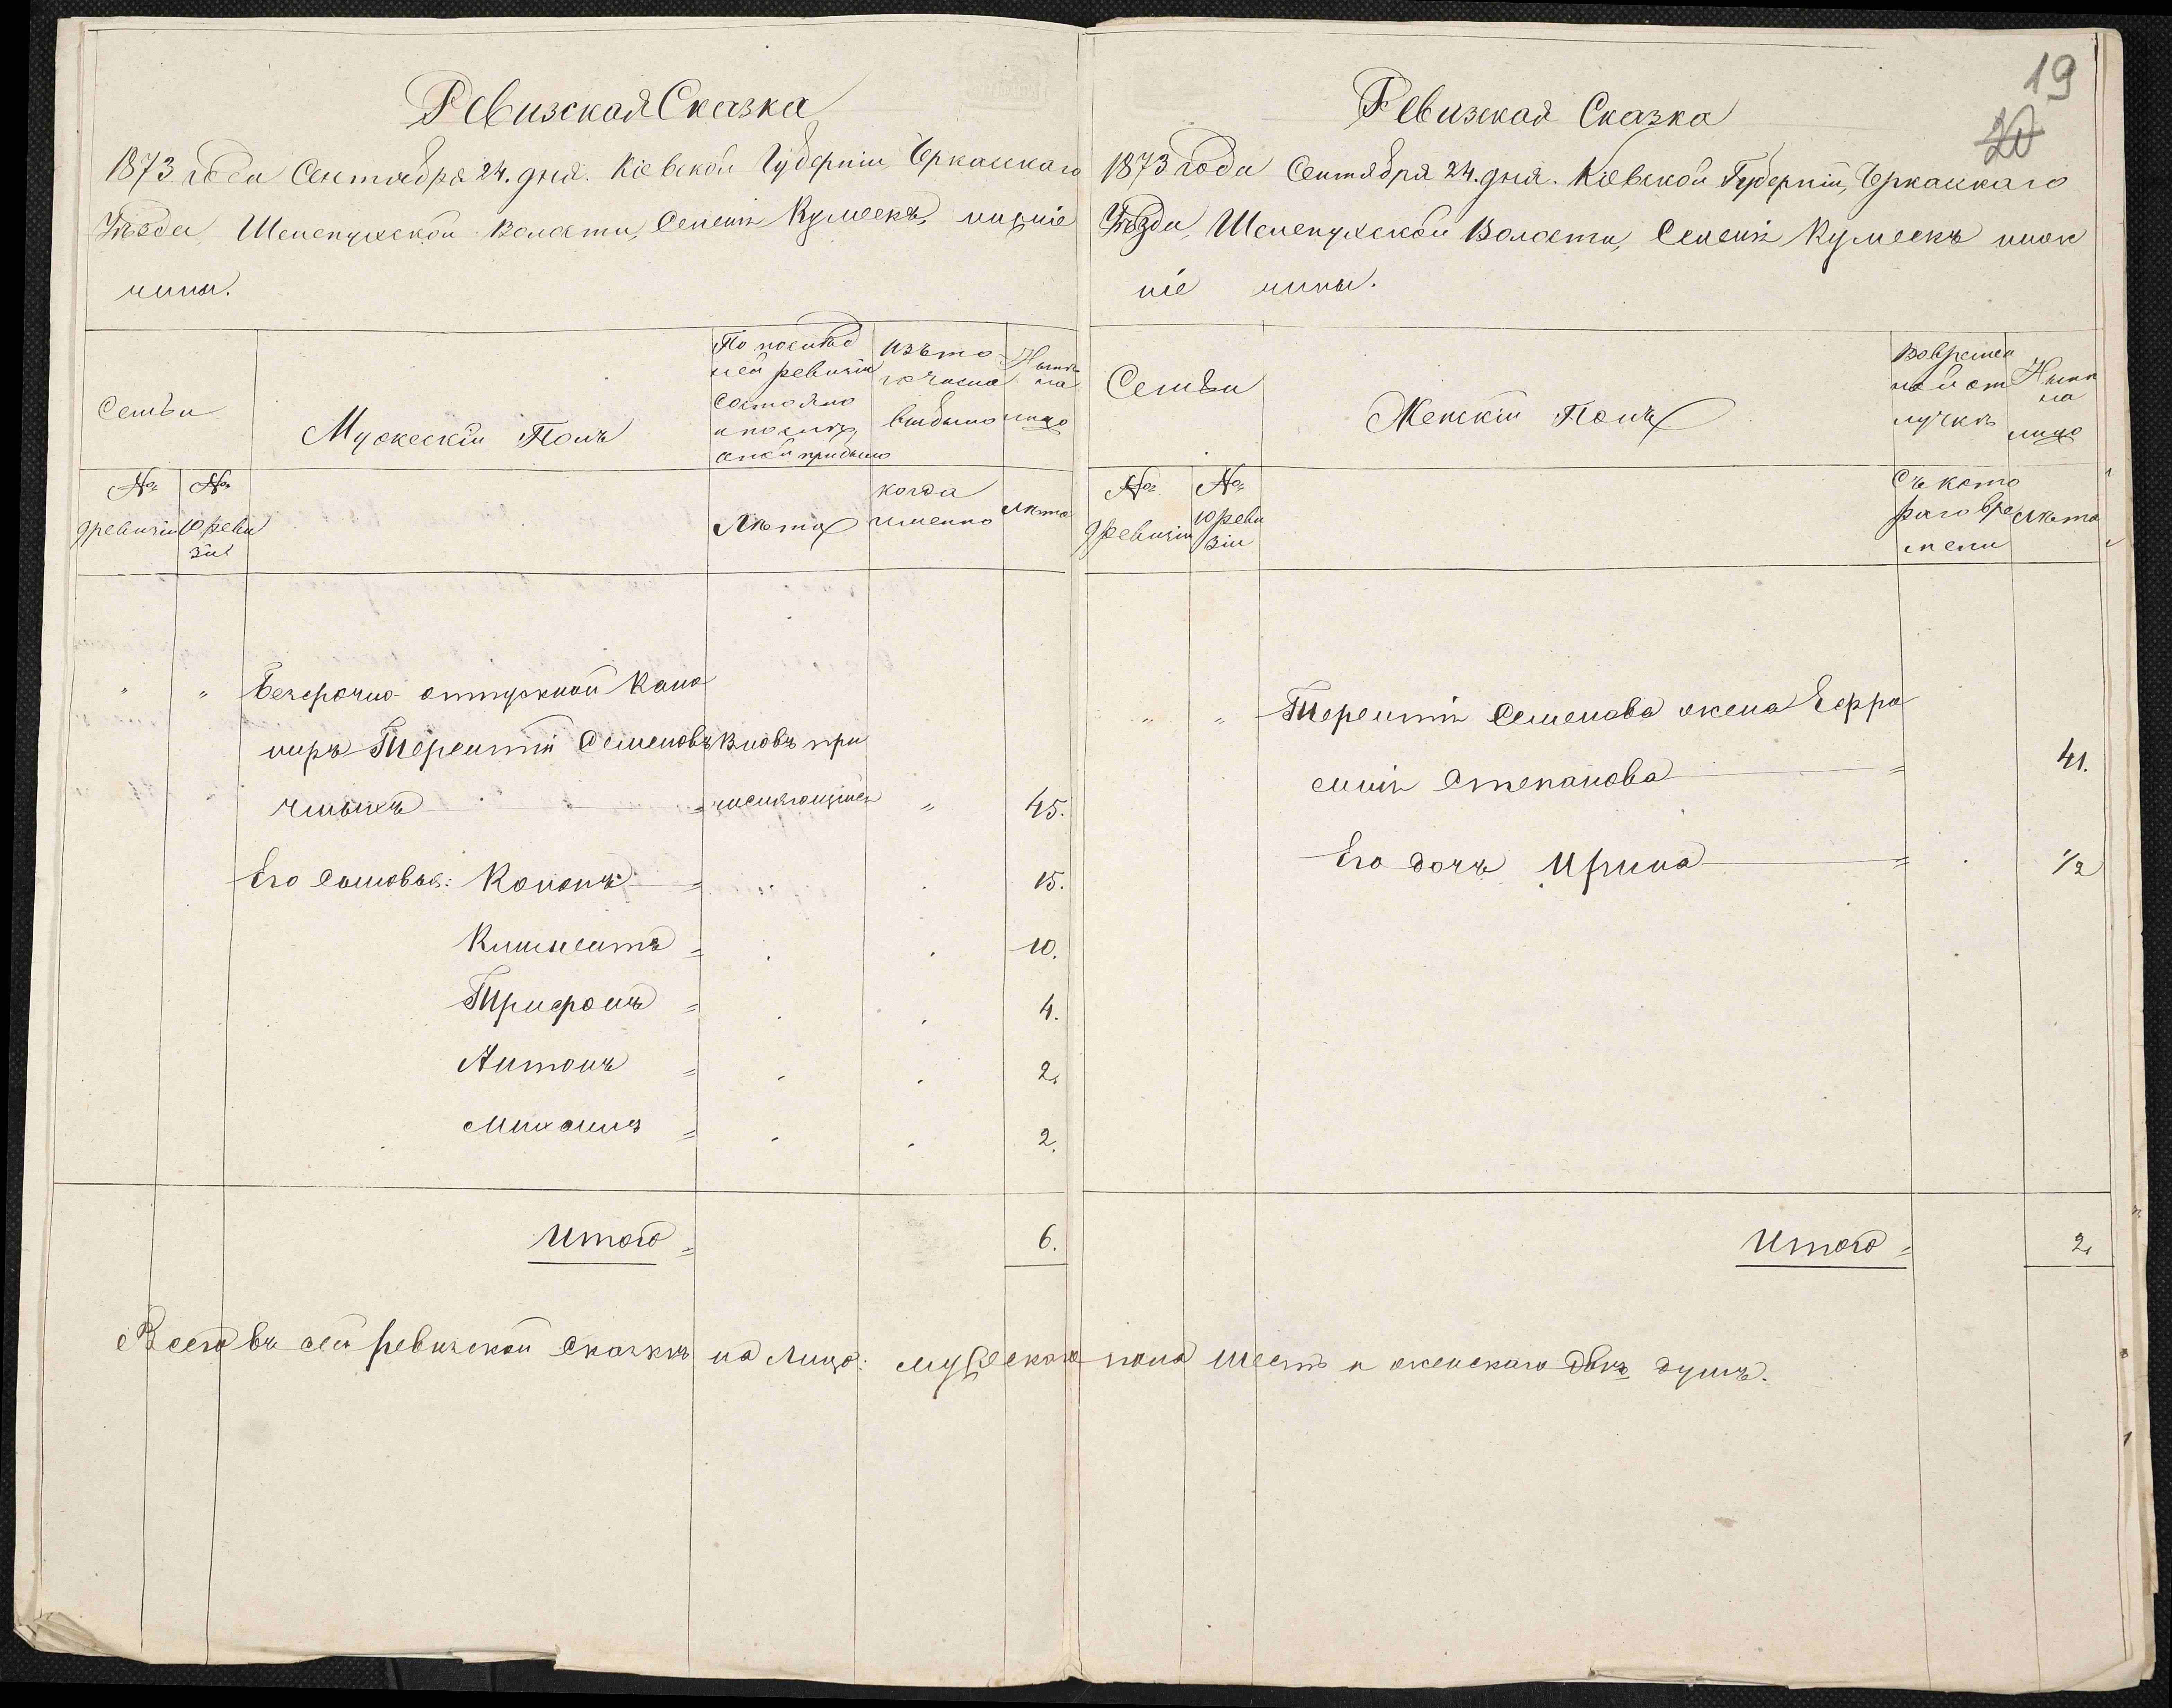 Ревизская Сказка
1873 года Сентября 24. дня. Кіевской Губерніи Черкаскаго
Уѣзда Шелепухской Волости, Селенія Кумеекъ, нижніе
чины.
Семьи
Мужескій Полъ
По послѣд
ней ревизіи
состояло
и послѣ
оной прибыло
Изъ то
го числа
выбыло
Нынѣ
на
лицо
№ №
9 ревизіи 10 реви
зіи
Лѣта
когда
именно
Лѣта
" " Безсрочно-отпускной Кано
ниръ Терентій Семеновъ Вновь при
числяющійся " 45.
Его сыновья: Кононъ = 15.
Климентъ = 10.
Трифонъ = 4.
Антонъ = 2.
Михаилъ = 2.
Итого = 6.
19
20
Ревизская Сказка
1873 года Сентября 24. дня. Кіевской Губерніи, Черкаскаго
Уѣзда, Шелепухской Волости, Селенія Кумеекъ ниж
ніе чины.
Семьи
Женскій Полъ
Во времен
ной от
лучкѣ
Нынѣ
на
лицо
№ №
9 ревизіи 10 реви
зіи
Съ кото
раго вре
мени
Лѣта
" " Терентія Семенова жена Ефро
синія Степанова = 41.
Его дочь Ирина = 1/2
Итого = 2.
Всего въ сей ревизской сказкѣ на лицо: мужескаго пола шесть и женскаго двѣ душъ.